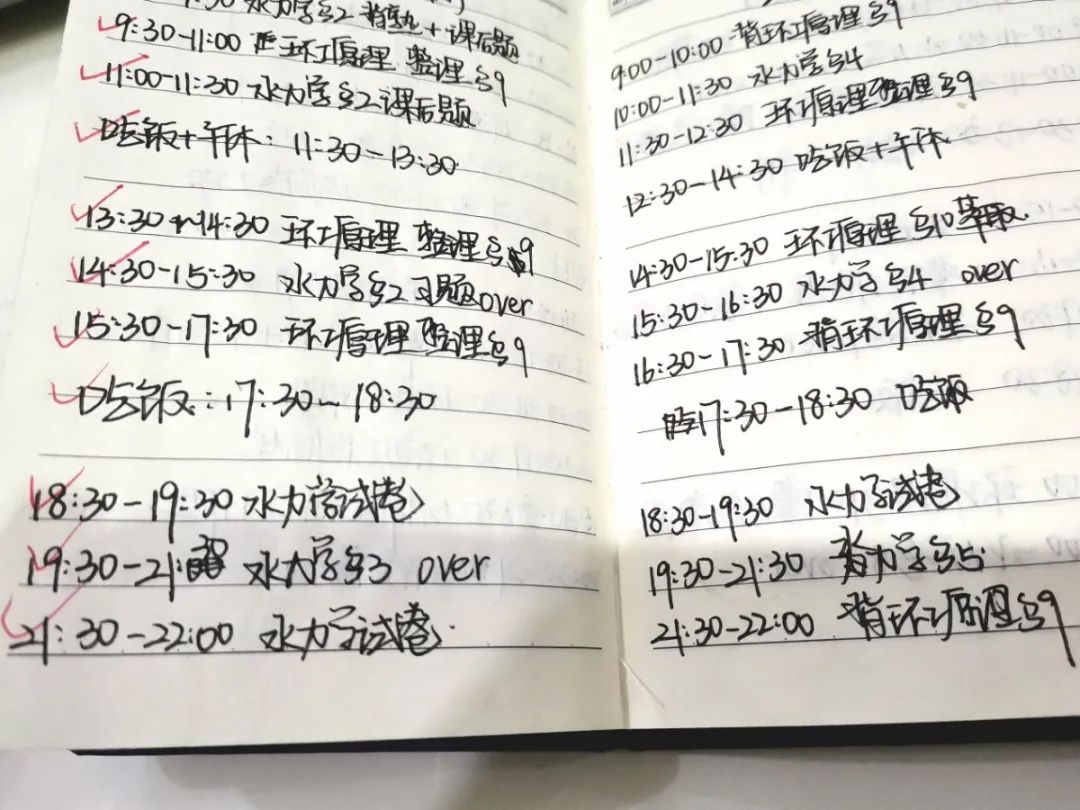 :30 水力学ㄢ2 背熟+课后题
9:30-11:00 环工原理 整理ㄢ9
11:00-11:30 水力学ㄢ2课后题
吃饭+午休:11:30-13:30
13:30-14:30 环工原理 整理ㄢ9
14:30-15:30 水力学ㄢ2习题over
15:30-17:30 环工原理 整理ㄢ9
吃饭:17:30-18:30
18:30-19:30 水力学试卷
19:30-21: 水力学ㄢ3 over
21:30-22:00 水力学试卷.
9:00-10:00 背环工原理ㄢ9
10:00-11:30 水力学ㄢ4
11:30-12:30 环工原理整理ㄢ9
12:30-14:30 吃饭+午休.
14:30-15:30 环工原理ㄢ10萃取.
15:30-16:30 水力学ㄢ4 over
16:30-17:30 背环工原理ㄢ9
17:30-18:30 吃饭
18:30-19:30 水力学试卷
19:30-21:30 水力学ㄢ5.
21:30-22:00 背环工原理ㄢ9